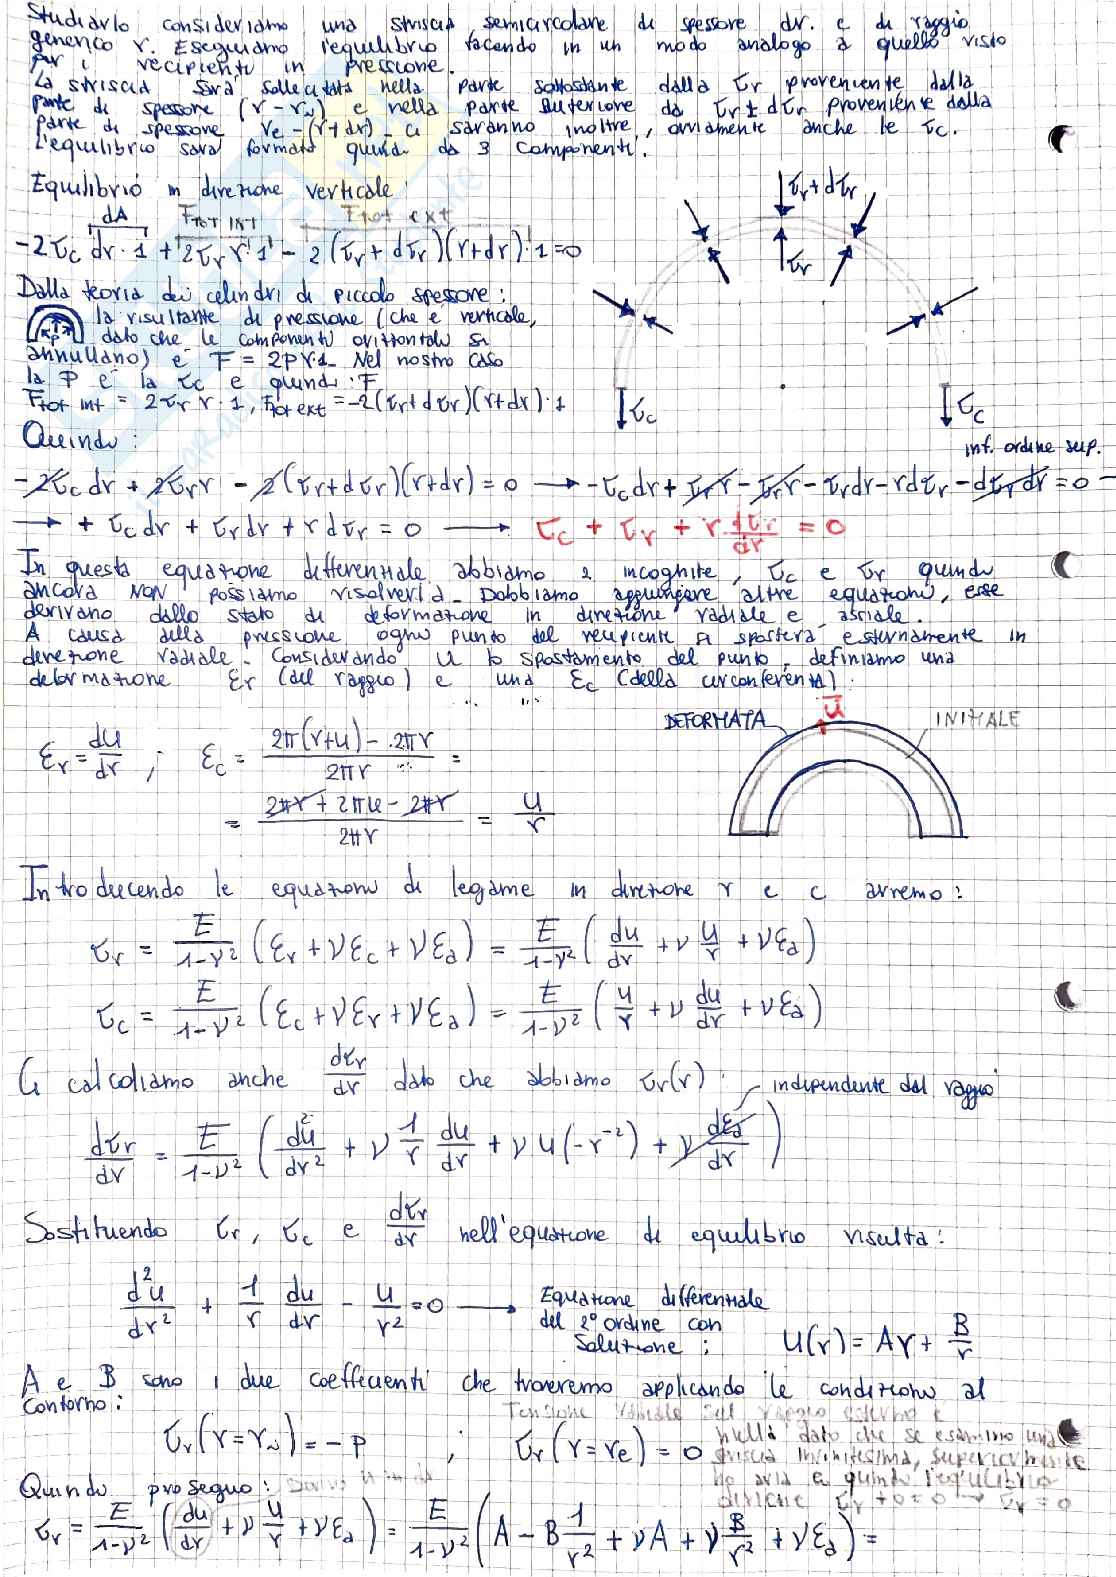 Studiarlo consideriamo una striscia semicircolare di spessore dr. e di raggio
generico r. Eseguiamo l'equilibrio facendo in un modo analogo a quello visto
per i recipienti in pressione.
La striscia sarà sollecitata nella parte sottostante dalla τr proveniente dalla
parte di spessore (r-ri) e nella parte superiore da τr+dτr proveniente dalla
parte di spessore re-(r+dr). Ci saranno inoltre, ovviamente anche le τc.
L'equilibrio sarà formato quindi da 3 componenti.
Equilibrio in direzione verticale:
dA FTOT INT Ftot ext
-2τc dr·1 + 2τr r·1 - 2(τr+dτr)(r+dr)·1=0
τr+dτr
τr
Dalla teoria dei cilindri di piccolo spessore:
la risultante di pressione (che è verticale,
dato che le componenti orizzontali si
annullano) è F = 2pr·1. Nel nostro caso
la P è la τc e quindi: F
Ftot int = 2τr r·1, Ftot ext=-2(τr+dτr)(r+dr)·1
P
τc τc
Quindi:
inf. ordine sup.
-2τc dr + 2τr r - 2(τr+dτr)(r+dr)=0 → -τc dr + τr r - τr r - τr dr - r dτr - dτr dr = 0 -
→ + τc dr + τr dr + r dτr = 0 → τc + τr + r dτr/dr = 0
In questa equazione differenziale abbiamo 2 incognite, τc e τr quindi
ancora NON possiamo risolverla. Dobbiamo aggiungere altre equazioni, esse
derivano dallo stato di deformazione in direzione radiale e assiale.
A causa della pressione ogni punto del recipiente si sposterà esternamente in
direzione radiale. Considerando u lo spostamento del punto, definiamo una
deformazione εr (del raggio) e una εc (della circonferenza):
DEFORMATA u INIZIALE
εr = du/dr ; εc = (2π(r+u) - 2πr)/2πr =
= (2πr + 2πu - 2πr)/2πr = u/r
Introducendo le equazioni di legame in direzione r e c avremo:
τr = E/(1-ν²) (εr + νεc + νεa) = E/(1-ν²) (du/dr + ν u/r + νεa)
τc = E/(1-ν²) (εc + νεr + νεa) = E/(1-ν²) (u/r + ν du/dr + νεa)
Ci calcoliamo anche dτr/dr dato che abbiamo τr(r): independente dal raggio
dτr/dr = E/(1-ν²) (d²u/dr² + ν 1/r du/dr + ν u(-r⁻²) + ν dεa/dr)
Sostituendo τr, τc e dτr/dr nell'equazione di equilibrio risulta:
d²u/dr² + 1/r du/dr - u/r² = 0 → Equazione differenziale
del 2° ordine con
soluzione: u(r) = Ar + B/r
A e B sono i due coefficienti che troveremo applicando le condizioni al
contorno:
τr(r=ri) = -P ; τr(r=re) = 0
Tensione radiale sul raggio esterno è
nulla dato che se esamino una
striscia infinitesima, superiormente
ho aria e quindi l'equilibrio
diviene τr+0=0 → τr=0
Quindi proseguo:
τr = E/(1-ν²) (du/dr + ν u/r + νεa) = E/(1-ν²) (A - B 1/r² + νA + ν B/r² + νεa) =